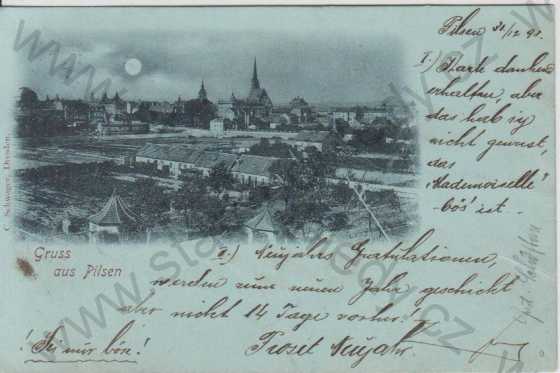 Pilsen 31/12 98.
1.) Karte dankend
erhalten, aber
das hab ich
nicht gewusst,
das
"Mademoiselle"
bös ist.
C. Schwager, Dresden.
Gruss
aus Pilsen
2.) Neujahrs Gratulationen,
werden zum neuen Jahr geschickt
aber nicht 14 Tage vorher!
! Sei nur böse!
Prosit Neujahr.